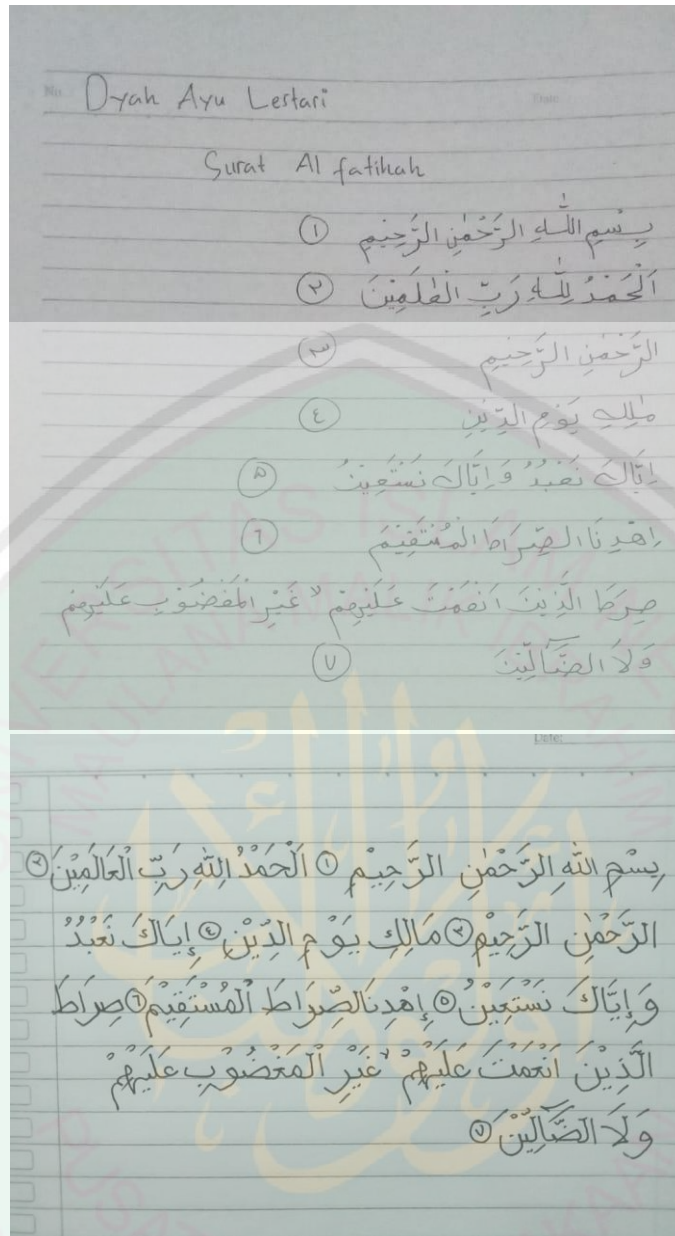 Dyah Ayu Lestari
Surat Al fatihah
بِسْمِ اللّٰهِ الرَّحْمٰنِ الرَّحِيْمِ ١
اَلْحَمْدُ لِلّٰهِ رَبِّ الْعٰلَمِيْنَ ٢
الرَّحْمٰنِ الرَّحِيْمِ ٣
مٰلِكِ يَوْمِ الدِّيْنِ ٤
اِيَّاكَ نَعْبُدُ وَاِيَّاكَ نَسْتَعِيْنُ ۵
اِهْدِنَا الصِّرَاطَ الْمُسْتَقِيْمَ ٦
صِرَاطَ الَّذِيْنَ اَنْعَمْتَ عَلَيْهِمْ ۙ غَيْرِ الْمَغْضُوْبِ عَلَيْهِمْ
وَلَا الضَّاۤلِّيْنَ ٧
Date:
بِسْمِ اللهِ الرَّحْمٰنِ الرَّحِيْمِ ١ اَلْحَمْدُ لِلّٰهِ رَبِّ الْعَالَمِيْنَ ٢
الرَّحْمٰنِ الرَّحِيْمِ ٣ مَالِكِ يَوْمِ الدِّيْنِ ٤ إِيَاكَ نَعْبُدُ
وَإِيَّاكَ نَسْتَعِيْنُ ۵ إِهْدِنَا الصِّرَاطَ الْمُسْتَقِيْمَ ٦ صِرَاطَ
الَّذِيْنَ اَنْعَمْتَ عَلَيْهِمْ ۙ غَيْرِ الْمَغْضُوْبِ عَلَيْهِمْ
وَلَا الضَّاۤلِّيْنَ ٧